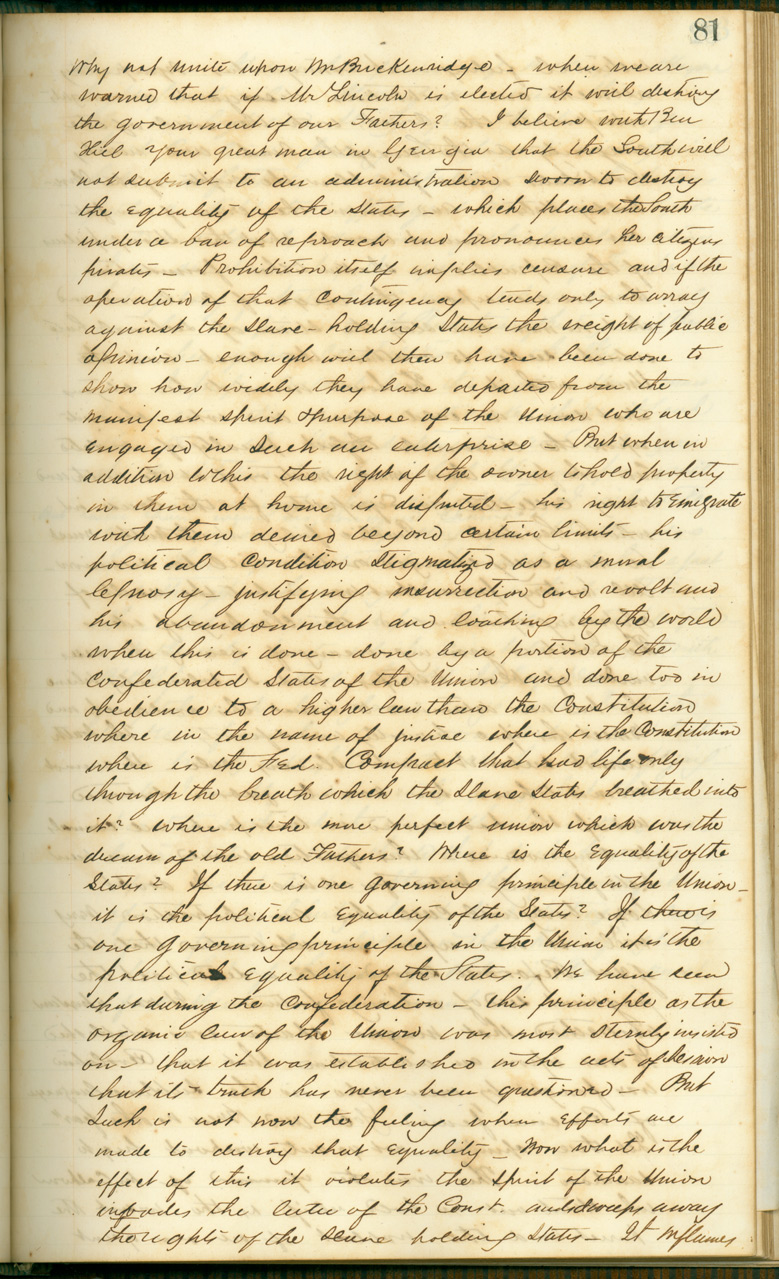 81
Why not unite upon Mr Breckenridge - when we are
warned that if Mr Lincoln is elected it will destroy
the government of our Fathers? I believe with Ben
Hill your great man in Georgia that the South will
not submit to an administration sworn to destroy
the equality of the States - which places the South
under a ban of reproach and pronounces her citizens
pirates - Prohibition itself implies censure and if the
operation of that contingency tends only to array
against the slave-holding States the weight of public
opinion - enough will then have been done to
show how widely they have departed from the
manifest spirit & purpose of the Union who are
engaged in such an enterprise - But when in
addition to this the right of the owner to hold property
in them at home is disputed - his right to Emigrate
with them denied beyond certain limits - his
political condition stigmatized as a moral
leprosy - justifying insurrection and revolt and
his abandonment and loathing by the world
when this is done - done by a portion of the
Confederated States of the Union and done too in
obedience to a higher law than the Constitution
where in the name of justice where is the Constitution
where is the Fed. Compact that had life only
through the breath which the Slave States breathed into
it? Where is the more perfect union which was the
dream of the old Fathers? Where is the Equality of the
States? If there is one governing principle in the Union -
it is the political Equality of the States? If there is
one governing principle in the Union it is the
political Equality of the States. We have seen
that during the Confederation - this principle as the
organic law of the Union was most sternly insisted
on - that it was established in the acts of
that its truth has never been questioned - But
Such is not now the feeling when Efforts are
made to destroy that Equality - Now what is the
effect of this it violates the spirit of the Union
invades the letter of the Const. and sweeps away
thoughts of the slave holding States - It inflames